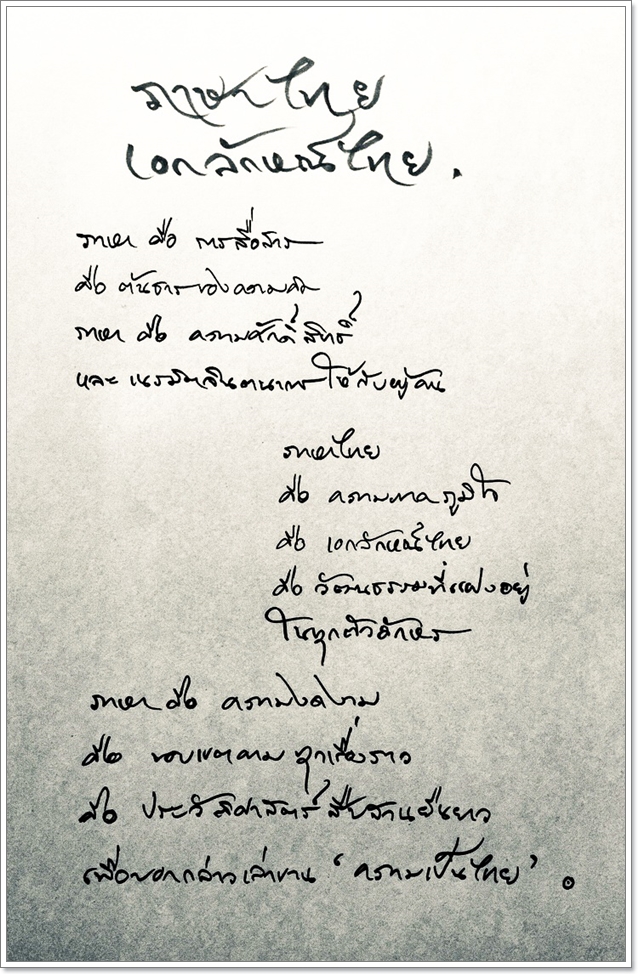 ภาษาไทย
เอกลักษณ์ไทย.
ภาษา คือ การสื่อสาร
คือ ต้นธารของความคิด
ภาษา คือ ความศักดิ์สิทธิ์
และ เนรมิตจินตนาการ ให้กับผู้คน
ภาษาไทย
คือ ความภาคภูมิใจ
คือ เอกลักษณ์ไทย
คือ วัฒนธรรมที่แฝงอยู่
ในทุกตัวอักษร
ภาษา คือ ความงดงาม
คือ ทุกเรื่องราว
คือ ประวัติศาสตร์ สืบสานยืนยาว
เพื่อบอกกล่าวเล่าขาน ‘ความเป็นไทย’